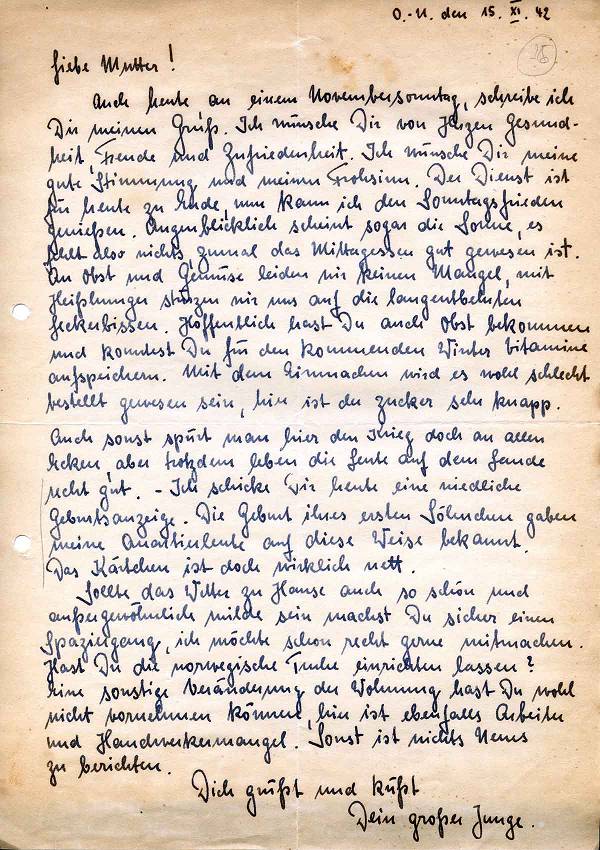 O.-U. den 15. XI. 42
Liebe Mutter!
Auch heute an einem Novembersonntag, schreibe ich
Dir meinen Gruß. Ich wünsche Dir von Herzen Gesund-
heit, Freude und Zufriedenheit. Ich wünsche Dir meine
gute Stimmung und meinen Frohsinn. Der Dienst ist
für heute zu Ende, nun kann ich den Sonntagsfrieden
genießen. Augenblicklich scheint sogar die Sonne, es
fehlt also nichts, zumal das Mittagessen gut gewesen ist.
An Obst und Gemüse leiden wir keinen Mangel, mit
Heißhunger stürzen wir uns auf die langentbehrten
Leckerbissen. Hoffentlich hast Du auch Obst bekommen
und konntest Du für den kommenden Winter Vitamine
aufspeichern. Mit dem Einmachen wird es wohl schlecht
bestellt gewesen sein, hier ist der Zucker sehr knapp.
Auch sonst spürt man hier den Krieg doch an allen
Ecken, aber trotzdem leben die Leute auf dem Lande
recht gut. - Ich schicke Dir heute eine niedliche
Geburtsanzeige. Die Geburt ihres ersten Söhnchen gaben
meine Quartierleute auf diese Weise bekannt.
Das Kärtchen ist doch wirklich nett.
Sollte das Wetter zu Hause auch so schön und
außergewöhnlich milde sein machst Du sicher einen
Spaziergang, ich möchte schon recht gerne mitmachen.
Hast Du die norwegische Truhe einrichten lassen?
Eine sonstige Veränderung der Wohnung hast Du wohl
nicht vornehmen können, hier ist ebenfalls Arbeiter
und Handwerkermangel. Sonst ist nichts Neues
zu berichten.
Dich grüßt und küßt
Dein großer Junge.